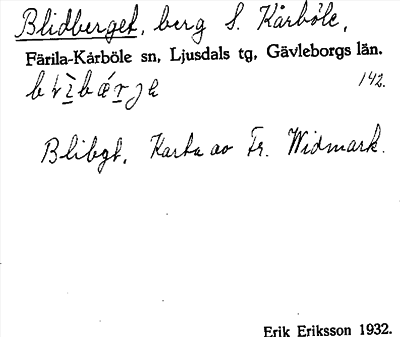 Blidberget, berg S. Kårböle,
Färila-Kårböle sn, Ljusdals tg, Gävleborgs län.
142.
Blibgt, Karta av Fr. Widmark.
Erik Eriksson 1932.